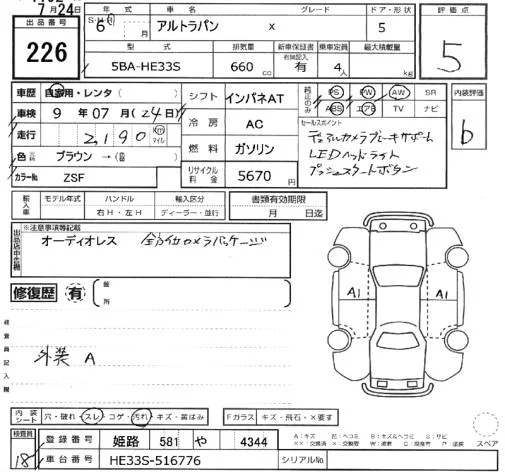 7月24日
出品番号 年式 車名 グレード ドア・形状 評価点
226 6年 月 アルトラパン X 5 5
型式 排気量 新車保証書 乗車定員 最大積載量
有無記入
5BA-HE33S 660cc 有 4人 kg
車歴 自家用・レンタ( ) シフト インパネAT 純正のみ PS PW AW SR 内装評価
車検 9年07月(24日) ABS エアB TV ナビ b
走行 2,190 km マイル 冷房 AC セールスポイント
デュアルカメラブレーキサポート
色 ブラウン→( ) 燃料 ガソリン LEDヘッドライト
カラーNo ZSF リサイクル料金 5670円 プッシュスタートボタン
輸入車 モデル年式 ハンドル 輸入区分 書類有効期限
右H・左H ディーラー・並行 月 日迄
出品店申告欄 ※注意事項等記載
オーディオレス 全方位カメラパッケージ
修復歴 有 箇所
A1 A1
検査員記入欄
外装 A
内装シート 穴・破れ・スレ・コゲ・汚れ・キズ・黄ばみ Fガラス キズ・飛石・×要す
検査員 登録番号 姫路 581 や 4344
18 車台番号 HE33S-516776 シリアルNo
A:キズ E:ヘコミ B:キズ&ヘコミ S:サビ
××:交換済 ×:交換要 W:波跡 C:腐食 P:塗装 スペア